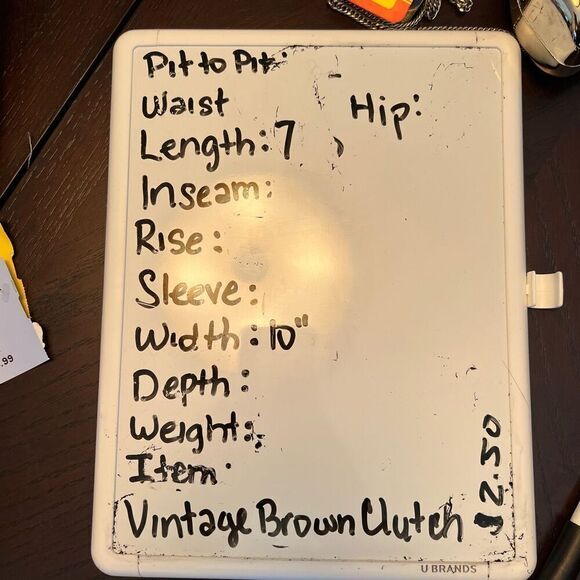 Pit to Pit:
Waist
Hip:
Length: 7
Inseam:
Rise:
Sleeve:
Width: 10"
Depth:
Weight:
Item:
Vintage Brown Clutch
$2.50
U BRANDS
.99